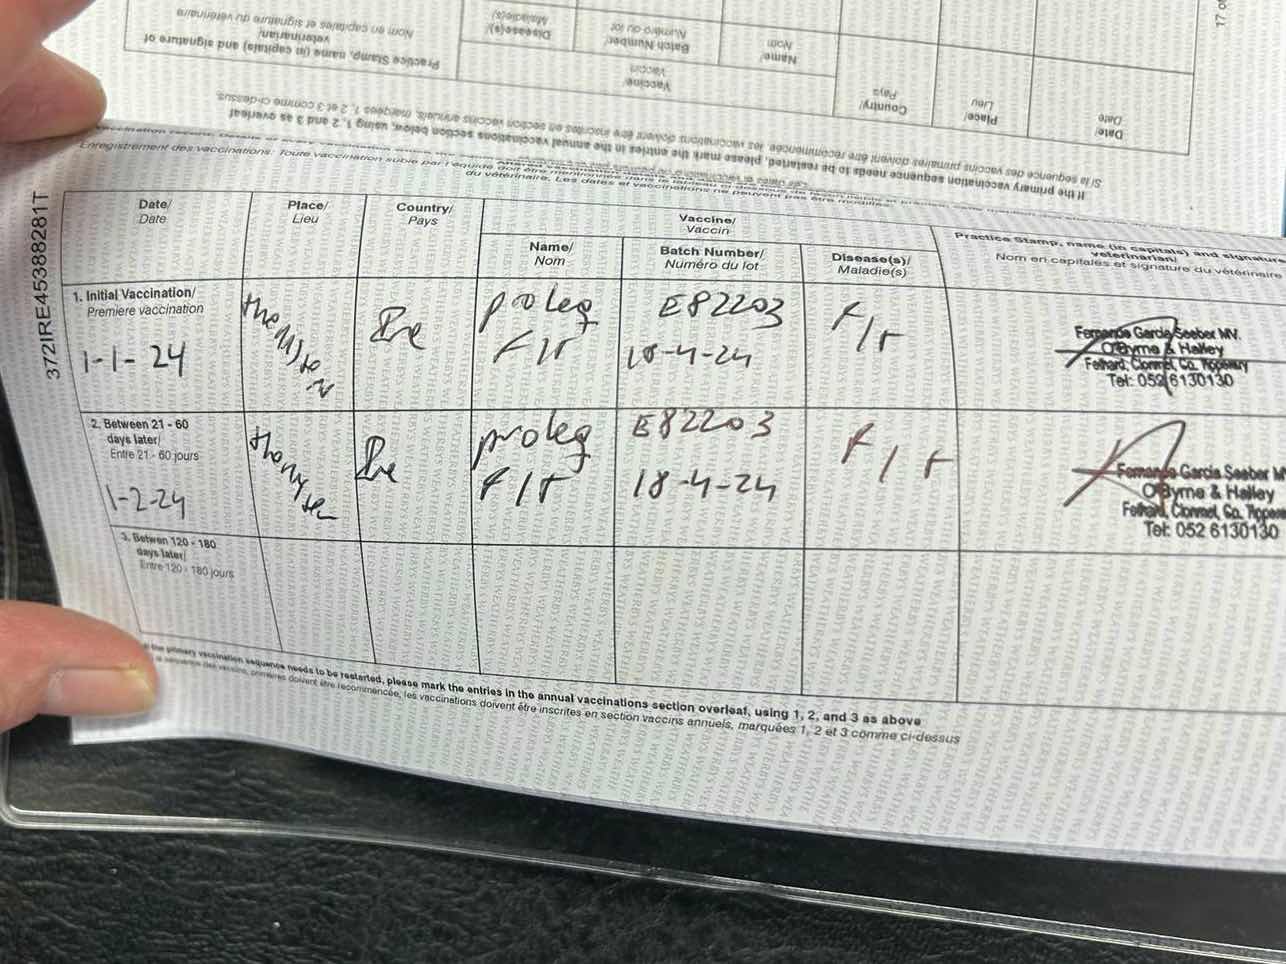 Practice Stamp, name (in capitals) and signature of
veterinarian/
Nom en capitales et signature du vétérinaire
Vaccine/
Vaccin
Disease(s)/
Maladie(s)
Batch Number/
Numéro du lot
Name/
Nom
Country/
Pays
Place/
Lieu
Date/
Date
If the primary vaccination sequence needs to be restarted, please mark the entries in the annual vaccinations section below, using 1, 2 and 3 as overleaf
Si la séquence des vaccins primaires doivent être recommencée, les vaccinations doivent être inscrites en section vaccins annuels, marquées 1, 2 et 3 comme ci-dessus
Enregistrement des vaccinations: Toute vaccination subie par l'équidé doit être mentionnée
du vétérinaire. Les dates et vaccinations ne peuvent pas être modifiées.
372IRE45388281T
Date/
Date
Place/
Lieu
Country/
Pays
Vaccine/
Vaccin
Name/
Nom
Batch Number/
Numéro du lot
Disease(s)/
Maladie(s)
Practice Stamp, name (in capitals) and signature
veterinarian/
Nom en capitales et signature du vétérinaire
1. Initial Vaccination/
Premiere vaccination
1-1-24
Ire
proteq
F/T
E82203
18-4-24
F/T
Fernando Garcia Seeber MV.
O'Byrne & Halley
Fethard, Clonmel, Co. Tipperary
Tel: 052 6130130
2. Between 21 - 60
days later/
Entre 21 - 60 jours
1-2-24
Ire
proteq
F/T
E82203
18-4-24
F/T
Fernando Garcia Seeber MV
O'Byrne & Halley
Fethard, Clonmel, Co. Tipperary
Tel: 052 6130130
3. Betwen 120 - 180
days later/
Entre 120 - 180 jours
the primary vaccination sequence needs to be restarted, please mark the entries in the annual vaccinations section overleaf, using 1, 2, and 3 as above
séquence des vaccins primaires doivent être recommencée, les vaccinations doivent être inscrites en section vaccins annuels, marquées 1, 2 et 3 comme ci-dessus